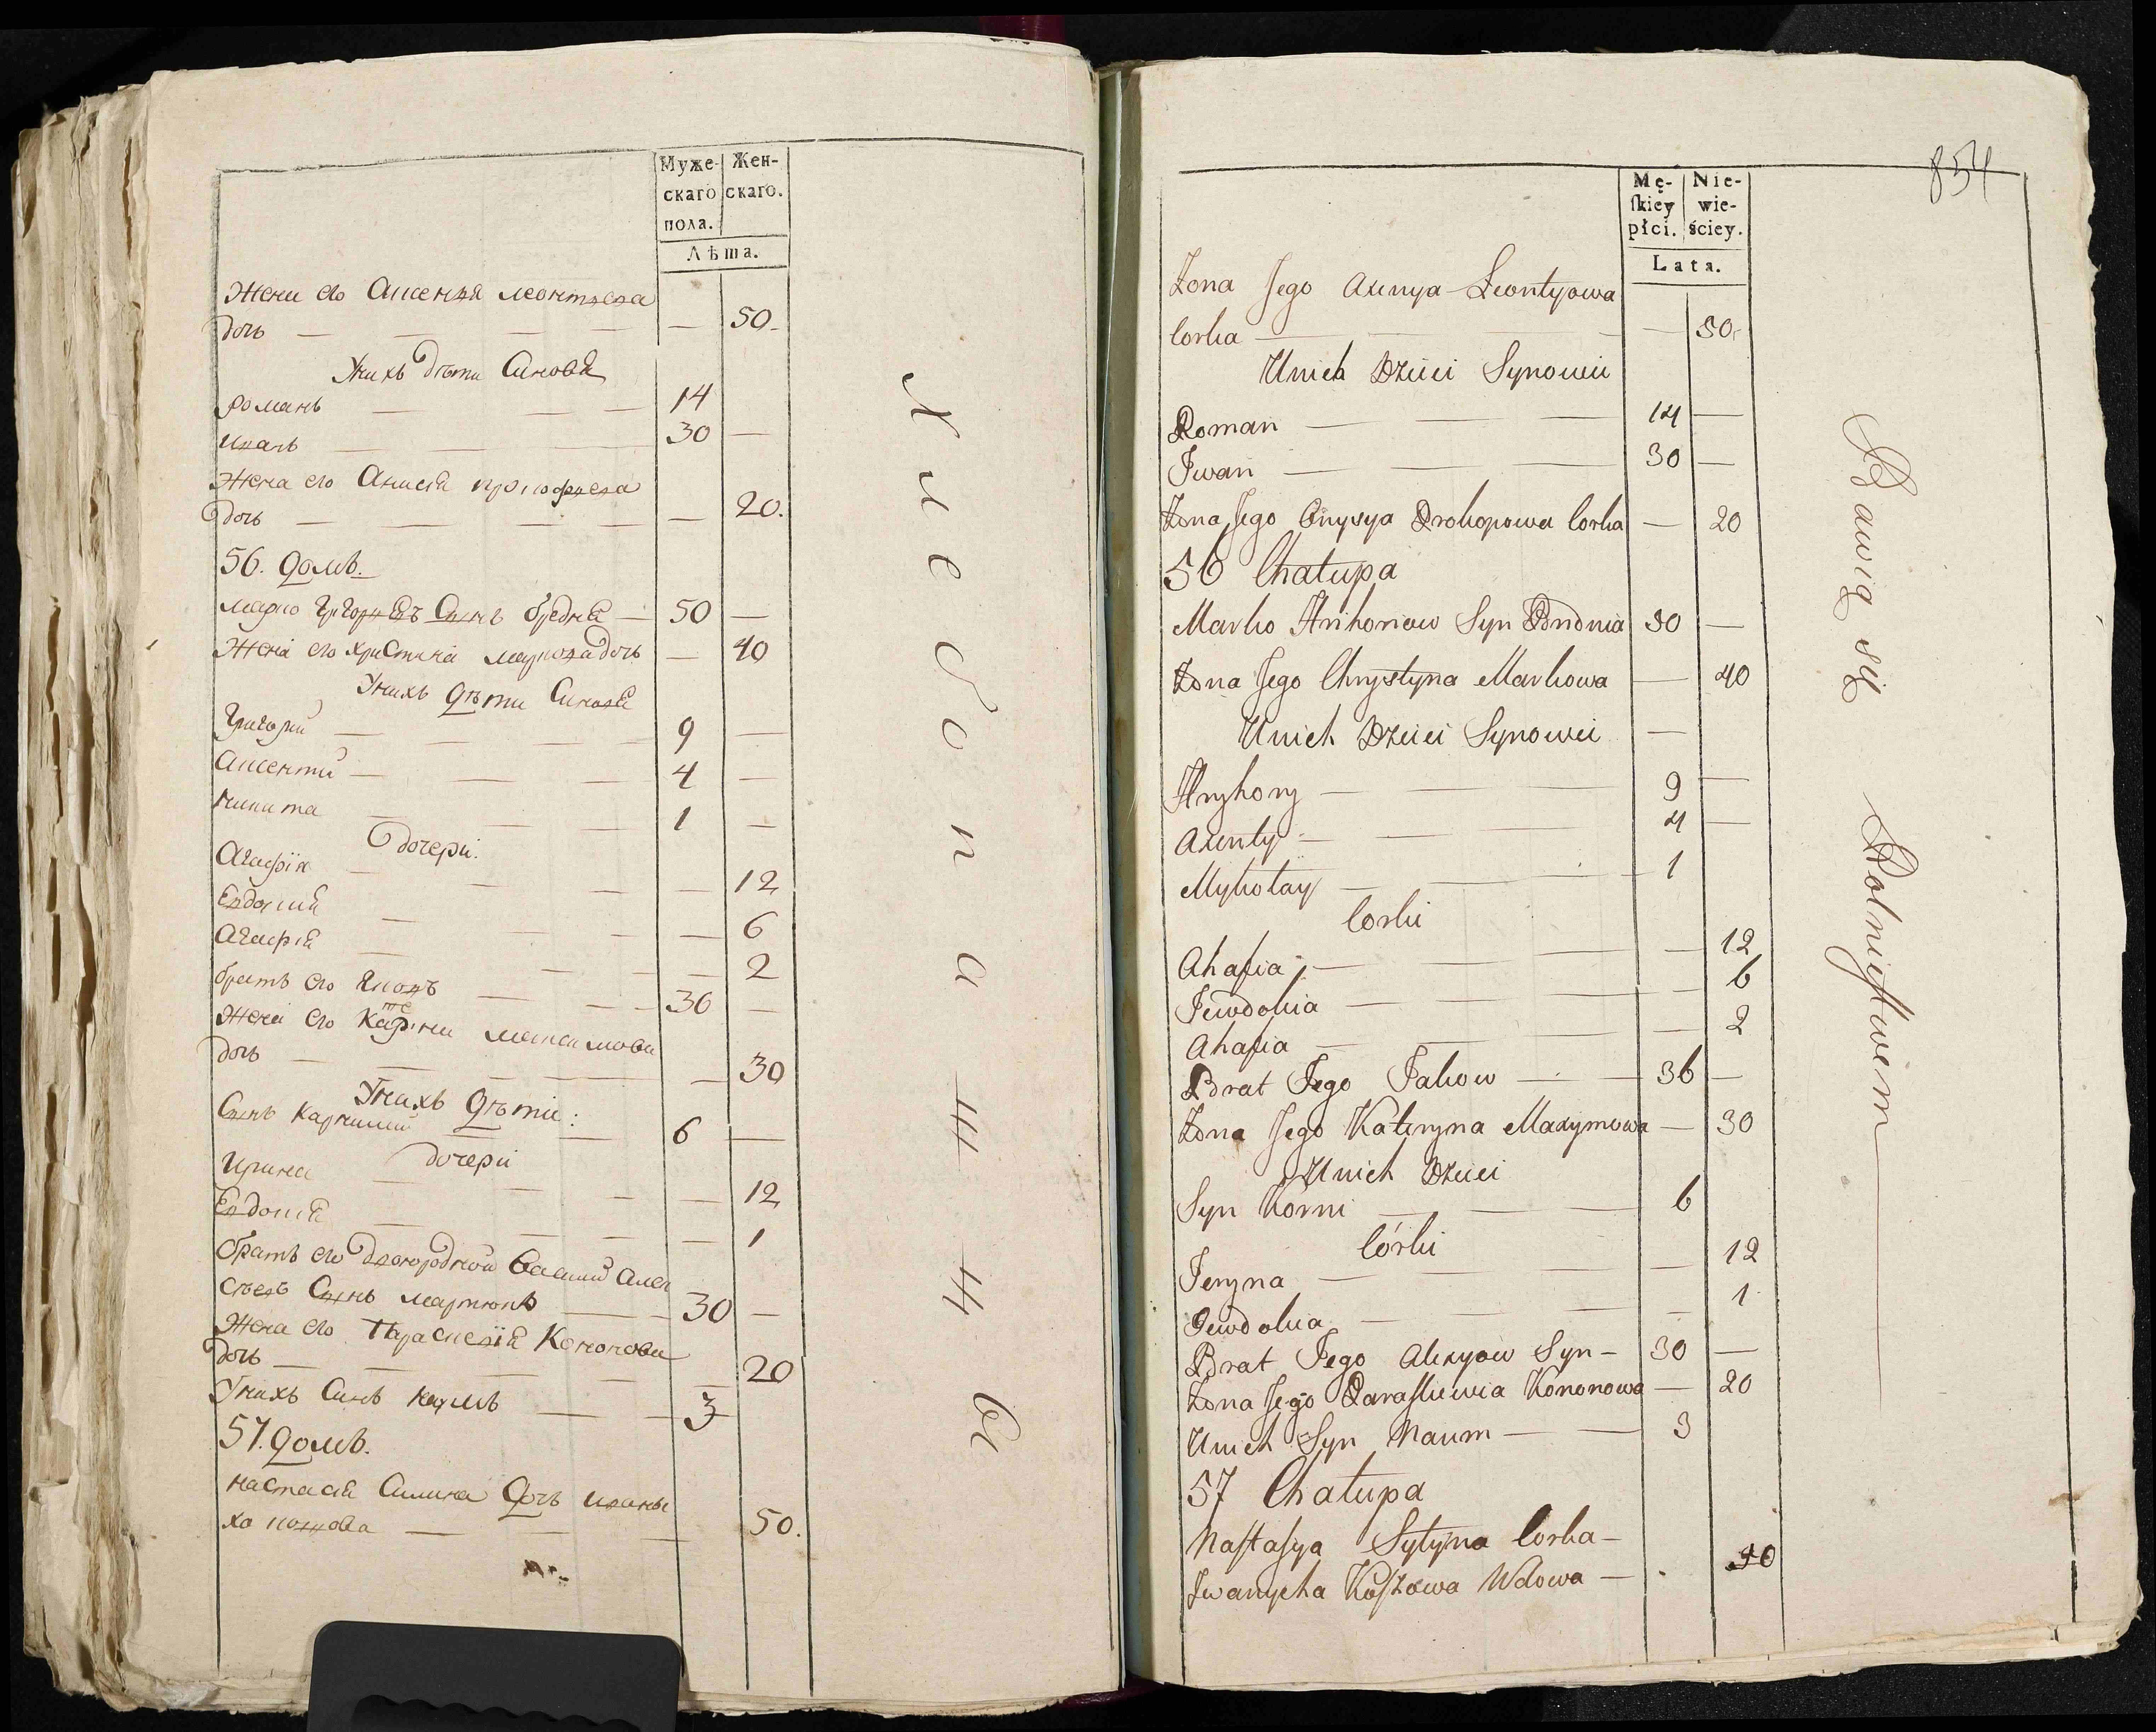 Муже-
скаго
пола.
Жен-
скаго.
Лѣта.
Жена его Аксенья леонтьева
дочь — 50.
У нихъ дѣти Синовья
романъ 14
иванъ 30 —
Жена его Анисья прокофьева
дочь — 20.
56. домъ.
марко Григорьевъ Синъ бредня — 50 —
Жена его христина маркова дочь — 40
У нихъ дѣти Синовья
Григорий 9 —
Аксентий 4 —
никита 1 —
дочери.
Агафия — 12
Евдокия — 6
Агафия — 2
братъ его Яковъ 36 —
Жена его Катерина максимова
дочь — 30
У нихъ дѣти:
Синъ Карнилий 6 —
дочери
Ирина — 12
Евдокия — 1
братъ его двоюродной Василий Алек
сѣевъ Синъ мартюкъ 30 —
Жена его Параскевия Кононова
дочь — 20
У нихъ Синъ наумъ 3
57. домъ.
настасия Силина дочь иваны
ха кошова 50.
Хлебопашцы
854
Mę-
skiey
płci.
Nie-
wie-
ściey.
Lata.
Żona Jego Axenya Leontyowa
Corka — 50
U nich Dzieci Synowei
Roman 14 —
Iwan 30 —
Żona Jego Onysya Prokopowa Corka — 20
56 Chałupa
Marko Hrihoriow Syn Brednia 50 —
Żona Jego Chrystyna Markowa — 40
U nich Dzieci Synowei —
Hryhory 9 —
Axenty 4 —
Mykołay 1
Corki
Ahafia — 12
Jewdokia — 6
Ahafia — 2
Brat Jego Jakow 36 —
Żona Jego Kateryna Maxymowa — 30
U nich Dzieci
Syn Korni 6
Córki
Jeryna — 12
Jewdokia — 1
Brat Jego Alexyow Syn — 30 —
Żona Jego Paraskiewia Kononowa — 20
U nich Syn Naum 3
57 Chałupa
Nastasya Syłyna Corka —
Iwanycha Koszowa Wdowa —
Bawią się Rolnictwem